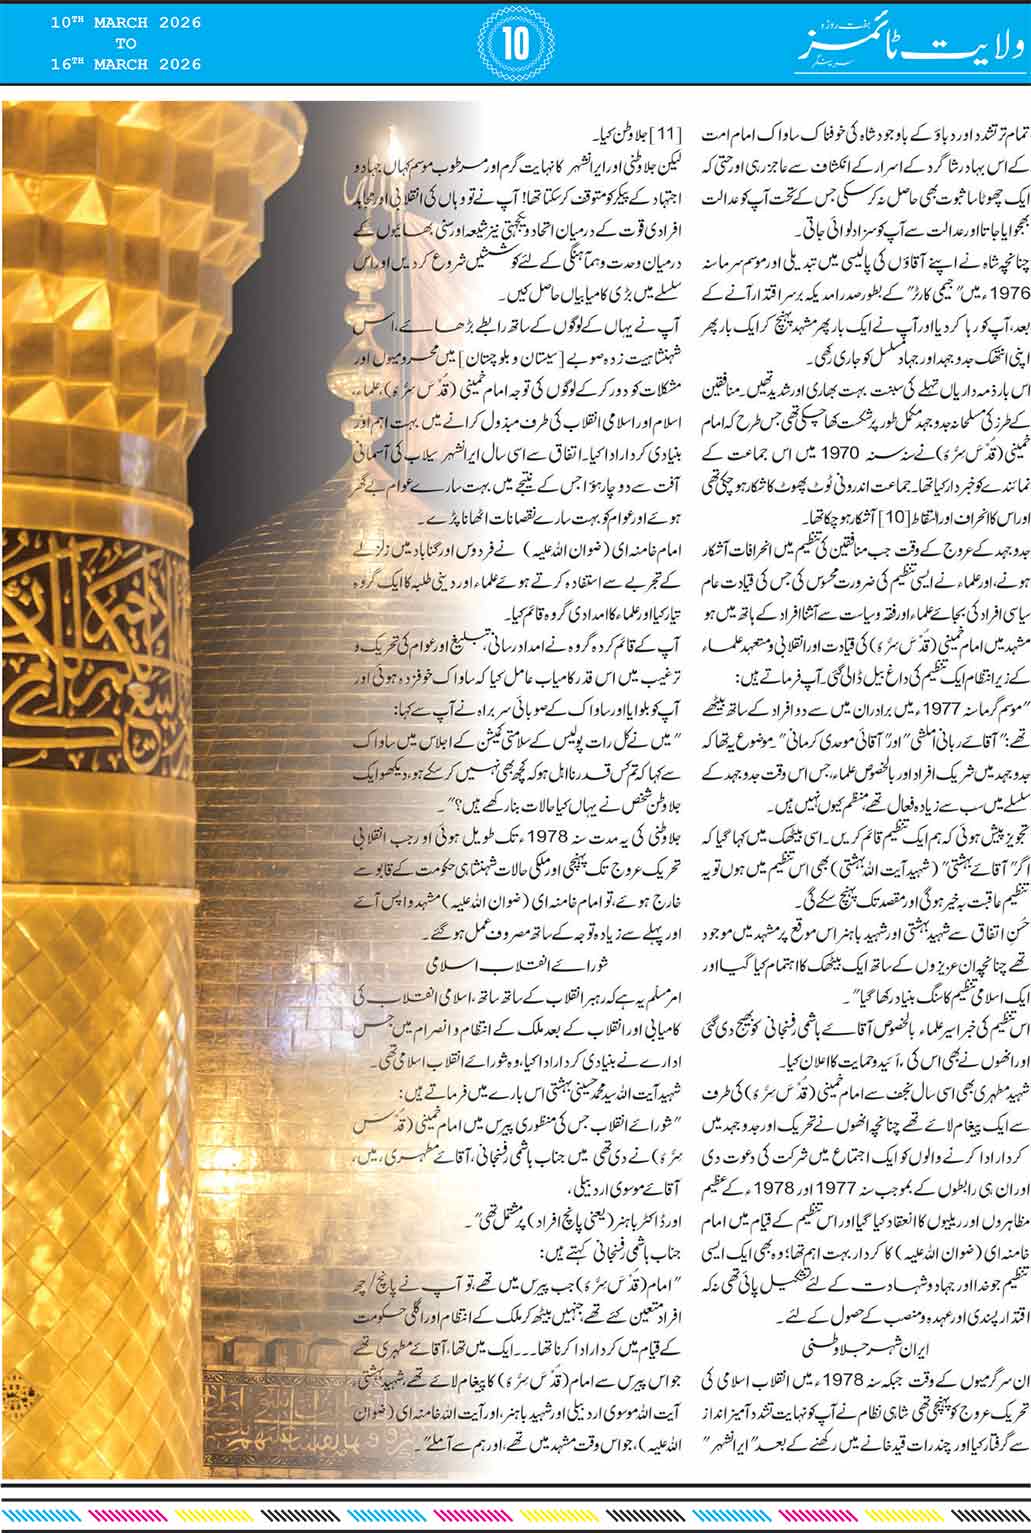 10TH MARCH 2026
TO
16TH MARCH 2026
10
ہفت روزہ
ولایت ٹائمز
سرینگر
تمام تر تشدد اور دباؤ کے باوجود شاہ کی خوفناک ساواک امام امت
کے اس بہادر شاگرد کے اسرار کے انکشاف سے عاجز رہی اور حتی کہ
ایک چھوٹا سا ثبوت بھی حاصل نہ کرسکی جس کے تحت آپ کو عدالت
بھجوایا جاتا اور عدالت سے آپ کو سزا دلوائی جاتی۔
چنانچہ شاہ نے اپنے آقاؤں کی پالیسی میں تبدیلی اور موسم سرما سنہ
1976ء میں "جیمی کارٹر" کے بطور صدر امریکہ برسر اقتدار آنے کے
بعد، آپ کو رہا کردیا اور آپ نے ایک بار پھر مشہد پہنچ کر ایک بار پھر
اپنی انتھک جدوجہد اور جہاد مسلسل کو جاری رکھی۔
اس بار ذمہ داریاں پہلے کی نسبت بہت بھاری اور شدید تھیں۔ منافقین
کے طرز کی مسلحانہ جدوجہد مکمل طور پر شکست کھا چکی تھی جس طرح کہ امام
خمینی (قُدِّسَ سِرُّہ) نے سنہ 1970 میں اس جماعت کے
نمائندے کو خبردار کیا تھا۔ جماعت اندرونی ٹوٹ پھوٹ کا شکار ہوچکی تھی
اور اس کا انحراف اور التقاط [10] آشکار ہو چکا تھا۔
جدوجہد کے عروج کے وقت جب منافقین کی تنظیم میں انحرافات آشکار
ہوئے، اور علماء نے ایسی تنظیم کی ضرورت محسوس کی جس کی قیادت عام
سیاسی افراد کی بجائے علماء اور فقہ و سیاست سے آشنا افراد کے ہاتھ میں ہو
مشہد میں امام خمینی (قُدِّسَ سِرُّہ) کی قیادت اور انقلابی و متعہد علماء
کے زیر انتظام ایک تنظیم کی داغ بیل ڈالی گئی۔ آپ فرماتے ہیں:
"موسم گرما سنہ 1977ء میں برادران میں سے دو افراد کے ساتھ بیٹھے
تھے: "آقائے ربانی املشی" اور "آقائی موحدی کرمانی"۔ موضوع یہ تھا کہ
جدوجہد میں شریک افراد اور بالخصوص علماء، جس اس وقت جدوجہد کے
سلسلے میں سب سے زیادہ فعال تھے، منظم کیوں نہیں ہیں۔
تجویز پیش ہوئی کہ ہم ایک تنظیم قائم کریں۔ اسی بیٹھک میں کہا گیا کہ
اگر "آقائے بہشتی" (شہید آیت اللہ بہشتی) بھی اس تنظیم میں ہوں تو یہ
تنظیم عاقبت بہ خیر ہوگی اور مقصد تک پہنچ سکے گی۔
حُسنِ اتفاق سے شہید بہشتی اور شہید باہنر اس موقع پر مشہد میں موجود
تھے چنانچہ ان عزیزوں کے ساتھ ایک بیٹھک کا اہتمام کیا گیا اور
ایک اسلامی تنظیم کا سنگ بنیاد رکھا گیا"۔
اس تنظیم کی خبر اسیر علماء بالخصوص آقائے ہاشمی رفنجانی کو بھیج دی گئی
اور انھوں نے بھی اس کی ,ائید و حمایت کا اعلان کیا۔
شہید مطہری بھی اسی سال نجف سے امام خمینی (قُدِّسَ سِرُّہ) کی طرف
سے ایک پیغام لائے تھے چنانچہ انھوں نے تحریک اور جدوجہد میں
کردار ادا کرنے والوں کو ایک اجتماع میں شرکت کی دعوت دی
اور ان ہی رابطوں کے بموجب سنہ 1977 اور 1978ء کے عظیم
مظاہروں اور ریلیوں کا انعقاد کیا گیا اور اس تنظیم کے قیام میں امام
خامنہ ای (ضوان اللہ علیہ) کا کردار بہت اہم تھا؛ وہ بھی ایک ایسی
تنظیم جو خدا اور جہاد و شہادت کے لئے تشکیل پائی تھی نہ کہ
اقتدار پسندی اور عہدہ و منصب کے حصول کے لئے۔
ایران شہر جلا وطنی
ان سرگرمیوں کے وقت جبکہ سنہ 1978ء میں انقلاب اسلامی کی
تحریک عروج کو پہنچی تھی شاہی نظام نے آپ کو نہایت تشدد آمیز انداز
سے گرفتار کیا اور چند رات قید خانے میں رکھنے کے بعد "ایرانشہر"
[11] جلا وطن کیا۔
لیکن جلاوطنی اور ایرانشہر کا نہایت گرم اور مرطوب موسم کہاں جہاد و
اجتہاد کے پیکر کو متوقف کرسکتا تھا! آپ نے تو وہاں کی انقلابی اور مجاہد
افرادی قوت کے درمیان اتحاد و یکجہتی نیز شیعہ اور سنی بھائیوں کے
درمیان وحدت و ہمآہنگی کے لئے کوششیں شروع کردیں اور اس
سلسلے میں بڑی کامیابیاں حاصل کیں۔
آپ نے یہاں کے لوگوں کے ساتھ رابطے بڑھائے، اس
شہنشاہیت زدہ صوبے [سیستان و بلوچستان] میں محرومیوں اور
مشکلات کو دور کرکے لوگوں کی توجہ امام خمینی (قُدِّسَ سِرُّہ)، علماء،
اسلام اور اسلامی انقلاب کی طرف مبذول کرانے میں بہت اہم اور
بنیادی کردار ادا کیا۔ اتفاق سے اسی سال ایرانشہر سیلاب کی آسمانی
آفت سے دوچار ہؤا جس کے نتیجے میں بہت سارے عوام بے گھر
ہوئے اور عوام کو بہت سارے نقصانات اٹھانا پڑے۔
امام خامنہ ای (ضوان اللہ علیہ) نے فردوس اور گناباد میں زلزلے
کے تجربے سے استفادہ کرتے ہوئے علماء اور دینی طلبہ کا ایک گروہ
تیار کیا اور علماء کا امدادی گروہ قائم کیا۔
آپ کے قائم کردہ گروہ نے امداد رسانی، تبلیغ اور عوام کی تحریک و
ترغیب میں اس قدر کامیاب عامل کیا کہ ساواک خوفزدہ ہوئی اور
آپ کو بلوایا اور ساواک کے صوبائی سربراہ نے آپ سے کہا:
"میں نے کل رات پولیس کے سلامتی کمیشن کے اجلاس میں ساواک
سے کہا کہ تم کس قدر نااہل ہو کہ کچھ بھی نہیں کرسکے ہو، دیکھو ایک
جلاوطن شخص نے یہاں کیا حالات بنا رکھے ہیں؟"۔
جلاوطنی کی یہ مدت سنہ 1978ء تک طویل ہوئی اور جب انقلابی
تحریک عروج تک پہنچی اور ملکی حالات شہنشاہی حکومت کے قابو سے
خارج ہوئے، تو امام خامنہ ای (ضوان اللہ علیہ) مشہد واپس آئے
اور پہلے سے زیادہ توجہ کے ساتھ مصروف عمل ہو گئے۔
شورائے انقلاب اسلامی
امر مسلم یہ ہے کہ رہبر انقلاب کے ساتھ ساتھ، اسلامی انقلاب کی
کامیابی اور انقلاب کے بعد ملک کے انتظام و انصرام میں جس
ادارے نے بنیادی کردار ادا کیا، وہ شورائے انقلاب اسلامی تھی۔
شہید آیت اللہ سید محمد حسینی بہشتی اس بارے میں فرماتے ہیں:
"شورائے انقلاب جس کی منظوری پیرس میں امام خمینی (قُدِّسَ
سِرُّہ) نے دی تھی میں جناب ہاشمی رفنجانی، آقائے مطہری، میں،
آقائے موسوی اردبیلی،
اور ڈاکٹر باہنر (یعنی پانچ افراد) پر مشتمل تھی"۔
جناب ہاشمی رفنجانی کہتے ہیں:
"امام (قُدِّسَ سِرُّہ) جب پیرس میں تھے، تو آپ نے پانچ/چھ
افراد متعین کئے تھے جنہیں بیٹھ کر ملک کے انتظام اور اگلی حکومت
کے قیام میں کردار ادا کرنا تھا۔۔۔ ایک میں تھا، آقائے مطہری تھے
جو اس پیرس سے امام (قُدِّسَ سِرُّہ) کا پیغام لائے تھے، شہید بہشتی،
آیت اللہ موسوی اردبیلی اور شہید باہنر، اور آیت اللہ خامنہ ای (ضوان
اللہ علیہ)، جو اس وقت مشہد میں تھے، اور ہم سے آملے"۔